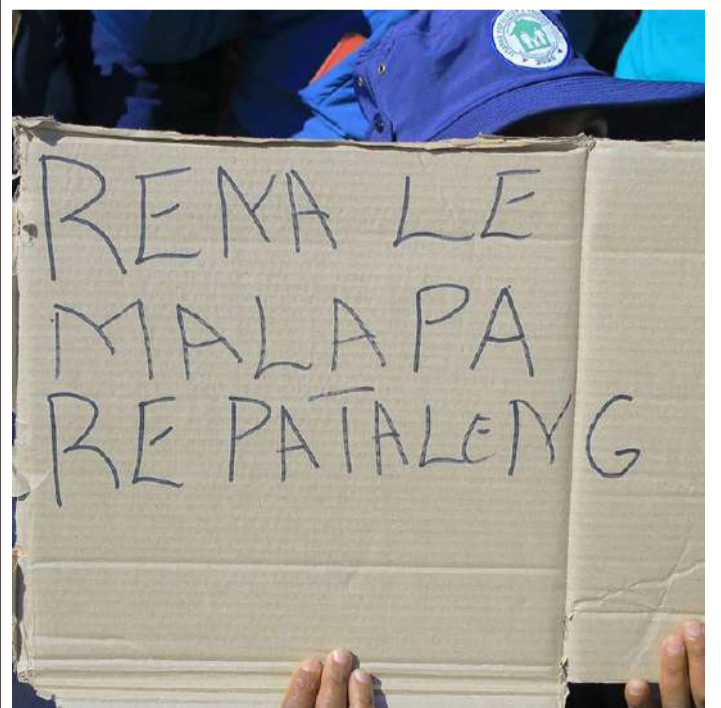 RENA LE
MALAPA
RE PATALENG